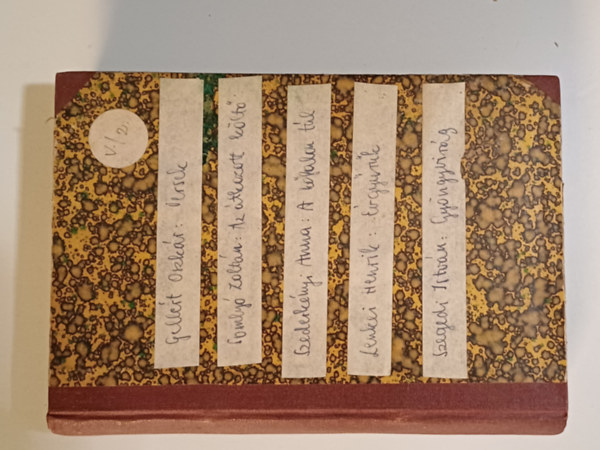 V/2.
Gellért Oszkár: Versek
Somlyó Zoltán: Az átkozott költő
Szederkényi Anna: A kőfalon túl
Lenkei Henrik: Évgyűrűk
Szegedi István: Gyöngyvirág